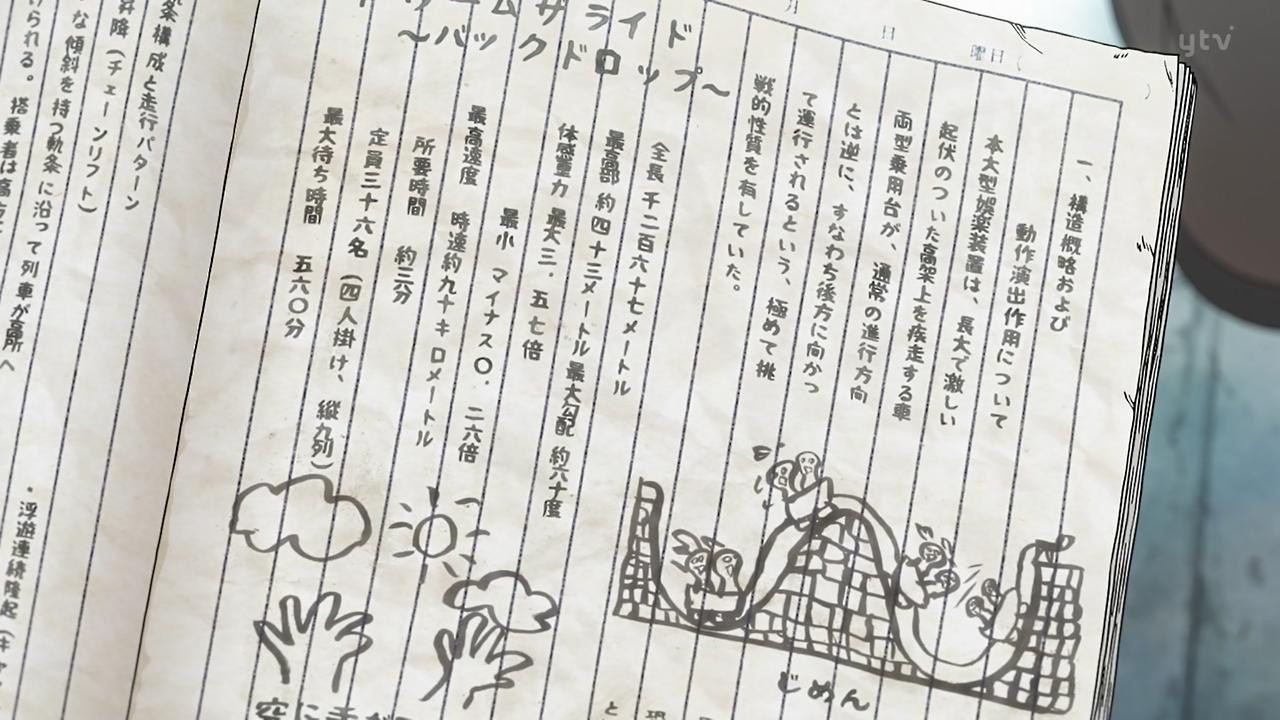 月　日　曜日
一、構造概略および
動作演出作用について
本大型娯楽装置は、長大で激しい
起伏のついた高架上を疾走する車
両型乗用台が、通常の進行方向
とは逆に、すなわち後方に向かっ
て運行されるという、極めて挑
戦的性質を有していた。
ライド
〜バックドロップ〜
全長 千二百六十七メートル
最高部 約四十三メートル 最大勾配 約六十度
体感重力 最大三．五七倍
最小 マイナス〇．二六倍
最高速度 時速約九十キロメートル
所要時間 約三分
定員三十六名（四人掛け、縦九列）
最大待ち時間 五六〇分
じめん
条構成と走行パターン
昇降（チェーンリフト）
な傾斜を持つ軌条に沿って列車が高所へ
られる。搭乗者は
・浮遊連続隆起（キャ
ytv